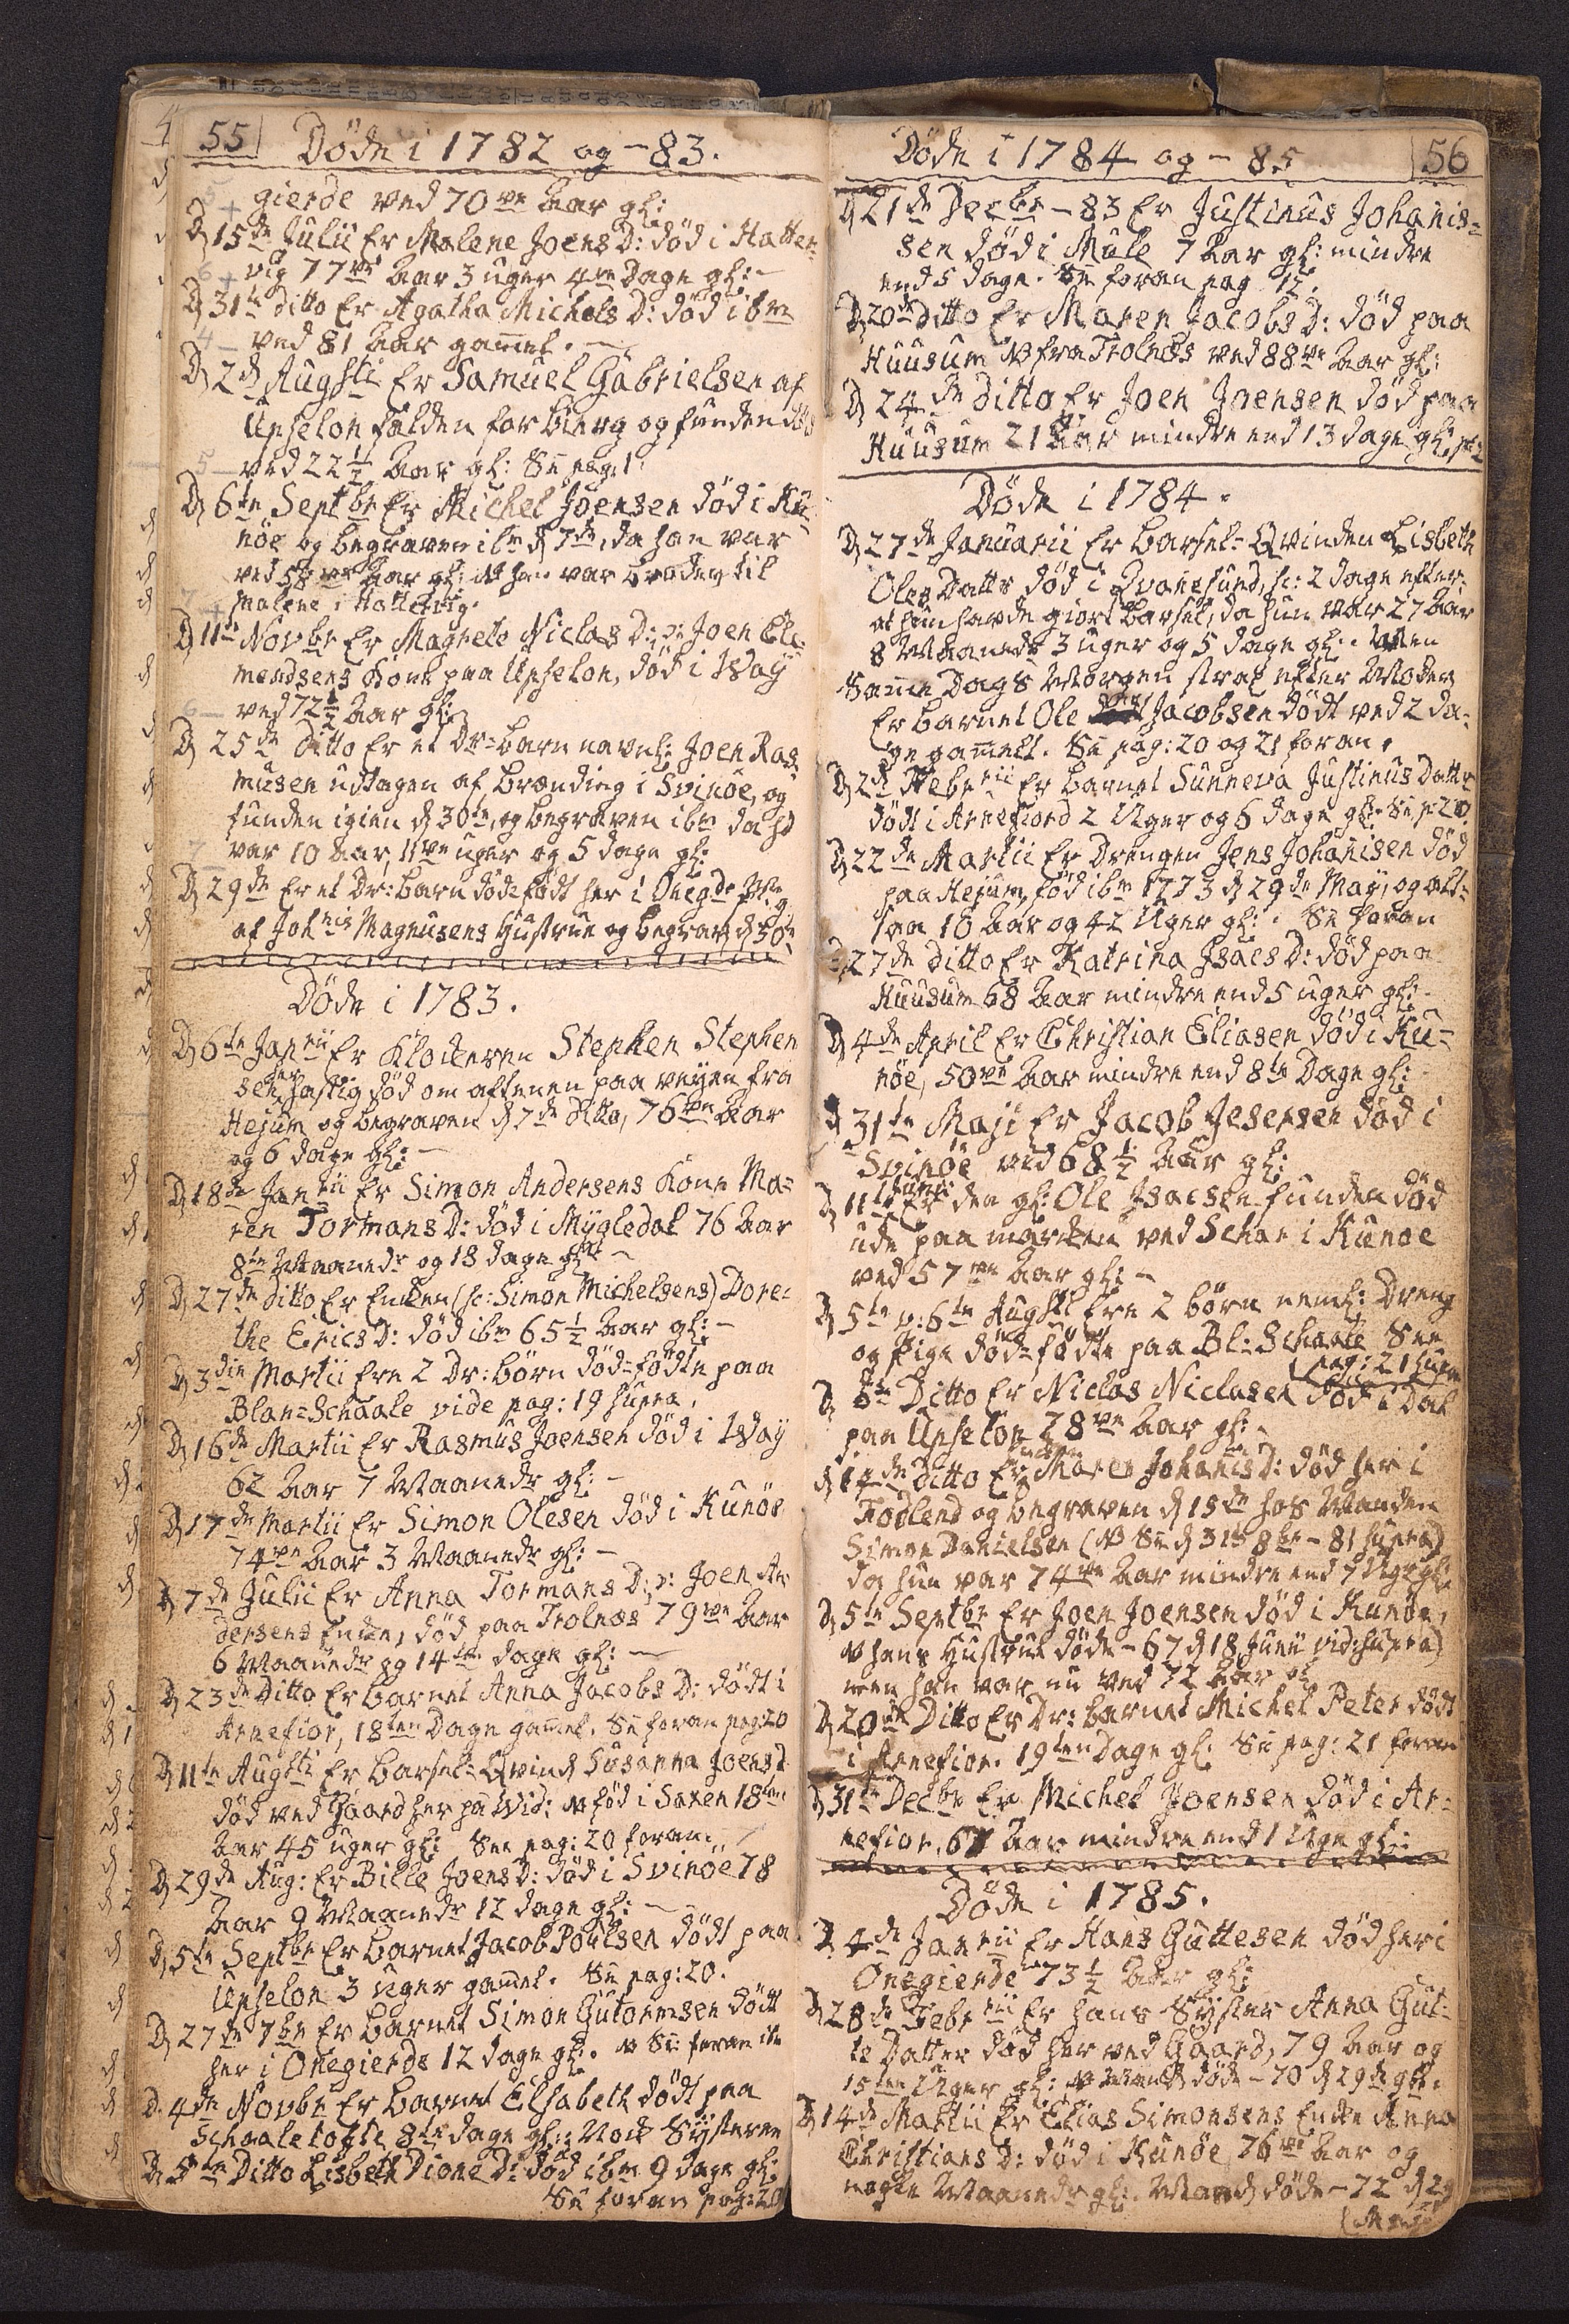 55 Döde i 1782 og - 83.
gierde ved 70ve Aar gl:
D 15de Julii Er Malene Joens D: död i Hatter=
vig 77ve Aar 3 uger 4re Dage gl: -
D 31te ditto Er Agatha Michels D: död ibm
ved 81 Aar gam̄el. -
D 2den Augsti Er Samuel Gabrielsen af
Upselon falden for Bierg og funden död
ved 22 1/2 Aar gl: See pag: 1.
D 6te Septbr Er Michel Joensen död i Ku=
nöe og begraven ibm D 7de, da han var
ved 58ve Aar gl: NB han var Broder til
Malene i Hattervig.
D 11te Novbr Er Magrete Niclas D: ɔ: Joen Cle=
mendsens Kone paa Upselon, död i Way
ved 72 1/2 Aar gl:
D 25de ditto Er et Dr=barn navnl: Joen Ras=
musen udtagen af Brænding i Svinöe, og
funden igien D 30te, og begraven ibm da hd
var 10 Aar, 11ve uger og 5 dage gl:
D 29de Er et Dr: barn dödfödt her i Onegde
af Johnis Magnusens Hustrue og begrav: D 30te
Döde i 1783.
D 6te Janrii Er Klokeren Stephen Stephen
sen hastig död om aftenen paa veyen fra
Hejum og begraven D 7de ditto, 76ve Aar
og 6 dage gl: -
D 18de Janrii Er Simon Andersens Kone Ma=
ren Tormans D: död i Mygledal 76 Aar
8te Maaneder og 18 dage gl: -
D 27de ditto Er Enken (sc: Simon Michelsens) Dore=
the Erics D: död ibm 65 1/2 Aar gl: -
D 3die Martii Ere 2 Dr: börn död=födte paa
Blan=Schaale vide pag: 19 supra.
D 16de Martii Er Rasmus Joensen död i Way
62 Aar 7 Maaneder gl: -
D 17de Martii Er Simon Olesen död i Kunöe
74ve Aar 3 Maaneder gl: -
D 7de Julii Er Anna Tormans D: ɔ: Joen An=
dersens Enke, död paa Trolnæs 79ve Aar
6 Maaneder og 14ten dage gl: -
D 23de Ditto Er barnet Anna Jacobs D: dödt i
Arnefior, 18ten Dage gam̄el. See foran pag: 20
D 11te Augsti Er Barsel=Qvind Susanna Joens D
död ved Gaard her på Wid: NB föd i Saxen 18ten
Aar 45 uger gl: See pag: 20 foran.
D 29de Aug: Er Bille Joens D: död i Svinöe 78
Aar 9 Maaneder 12 dage gl: -
D 5te Septbr Er barnet Jacob Poulsen dödt paa
Upselon 3 uger gam̄el. See pag: 20.
D 27de 7br Er barnet Simon Gutormsen dödt
her i Onegierde 12 dage gl: NB See foran
D. 4de Novbr Er barnet Elsabeth dödt paa
Schaaletofte 8te dage gl: Nok Systeren
D 5te Ditto Lisbeth Dione D: död ibm 9 dage gl:
See foran pag: 20
Döde i 1784 og - 85 56
D 21de Decbr - 83 Er Justinus Johanis=
sen död i Mule 7 Aar gl: mindre
end 5 dage. See foran pag 12.
D 20de ditto Er Maren Jacobs D: död paa
Huusum NB fra Trolnæs ved 88ve Aar gl:
D 24de ditto Er Joen Joensen död paa
Huusum 21 Aar mindre end 13 dage gl:
Döde i 1784.
D 27de Januarii Er Barsel=Qvinden Lisbeth
Oles Datter död i Qvanesund, sc: 2 dage efter
at hun havde giort Barsel, da hun var 27 Aar
8 Maaneder 3 uger og 5 dage gl: Men
Sam̄e Dags Morgen strax efter Moder
Er barnet Ole Jacobsen dödt ved 2 da=
ge gam̄elt. See pag: 20 og 21 foran.
D 2de Febrii Er barnet Sunneva Justinus Datter
dödt i Arnefiord 2 Uger og 6 dage gl: See p: 20.
D 22de Martii Er Drengen Jens Johanisen död
paa Hejum, föd ibm 1773 D 29de May, og alt=
saa 10 Aar og 42 Uger gl: See foran
D 27de ditto Er Katrina Isacs D: död paa
Huusum 68 Aar mindre end 5 uger gl: -
D 4de April Er Christian Eliasen död i Ku=
nöe, 50ve Aar mindre end 8te Dage gl: -
D 31te Maji Er Jacob Jesersen död i
Svinöe ved 68 1/2 Aar gl:
D 11te Junii Er den gl: Ole Isacsen funden död
ude paa marken ved Schar i Kunöe
ved 57ve Aar gl: -
D 5te o: 6te Augsti Ere 2 börn neml: Dreng
og Pige död=födte paa Bl=Schaale See
pag: 21 supra
D 8de Ditto Er Niclas Niclasen död i Dal
paa Upselon 78ve Aar gl: -
D 14de ditto Er Enken Maren Johanis D: död her i
Fodlend og begraven D 15de hos Manden
Simon Danielsen (NB See D 31te 8br - 81 supra)
da hun var 74ve Aar mindre end 7 Uger gl:
D 5te Septbr Er Joen Joensen död i Kunöe,
NB hans Hustrue döde - 67 D 18 Junii vid: supra)
men han var nu ved 72 Aar gl
D 20de Ditto Er Dr: barnet Michel Peter dödt
i Arnefior. 19ten Dage gl: See pag: 21 foran
D 31te Decbr Er Michel Joensen död i Ar=
nefior, 67 Aar mindre end 1 Uge gl:
Döde i 1785.
D 4de Janrii Er Hans Guttesen död her i
Onegierde 73 1/2 Aar gl:
D 28de Febrii Er hans Syster Anna Gut=
te Datter död her ved Gaard, 79 Aar og
15ten Uger gl: NB Mand döde - 70 D 29de
D 14de Martii Er Elias Simonsens Enke Anna
Christians D: död i Kunöe, 76ve Aar og
nogle Maaneder gl: Mand döde - 72 D 29